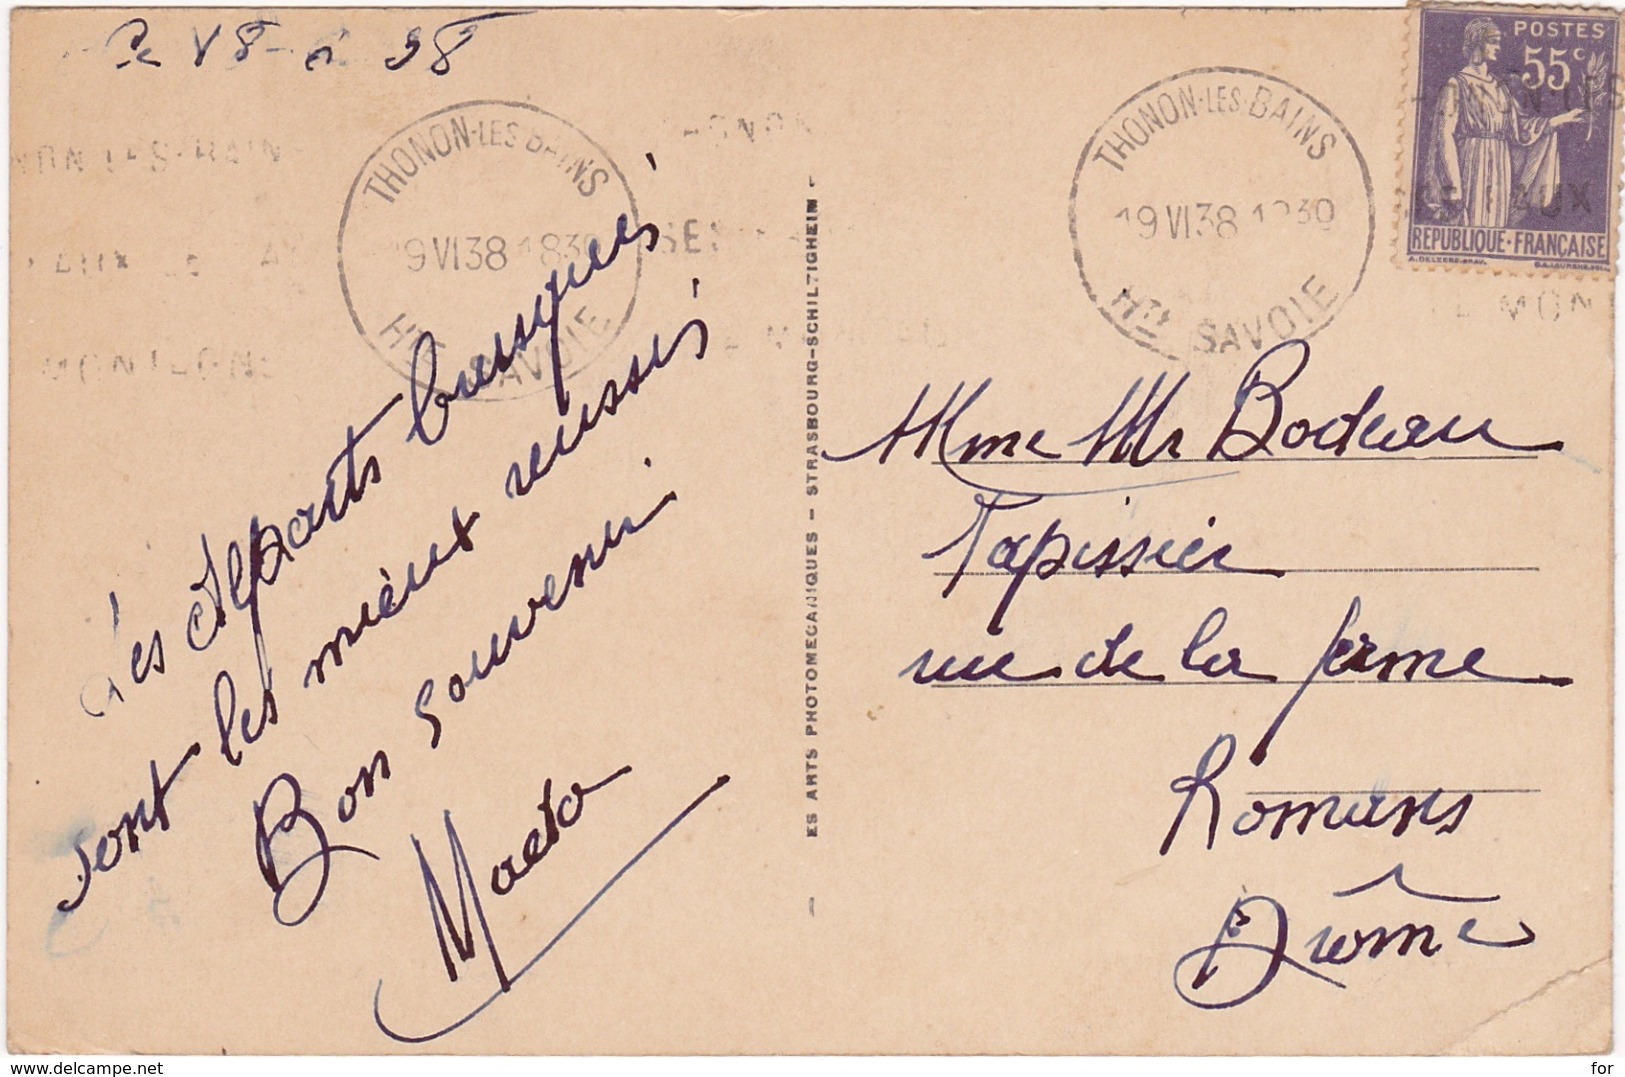 Ce 18-6 38
POSTES
55c
REPUBLIQUE·FRANÇAISE
THONON·LES·BAINS
19 VI 38 1830
HTE SAVOIE
THONON·LES·BAINS
19 VI 38 1830
HTE SAVOIE
Les départs brusqués
sont les mieux reussis
Bon souvenir
ES ARTS PHOTOMECANIQUES – STRASBOURG-SCHILTIGHEIM –
Mme Mr Bodeau
Tapissier
rue de la ferme
Romans
Drôme
www.delcampe.net
for